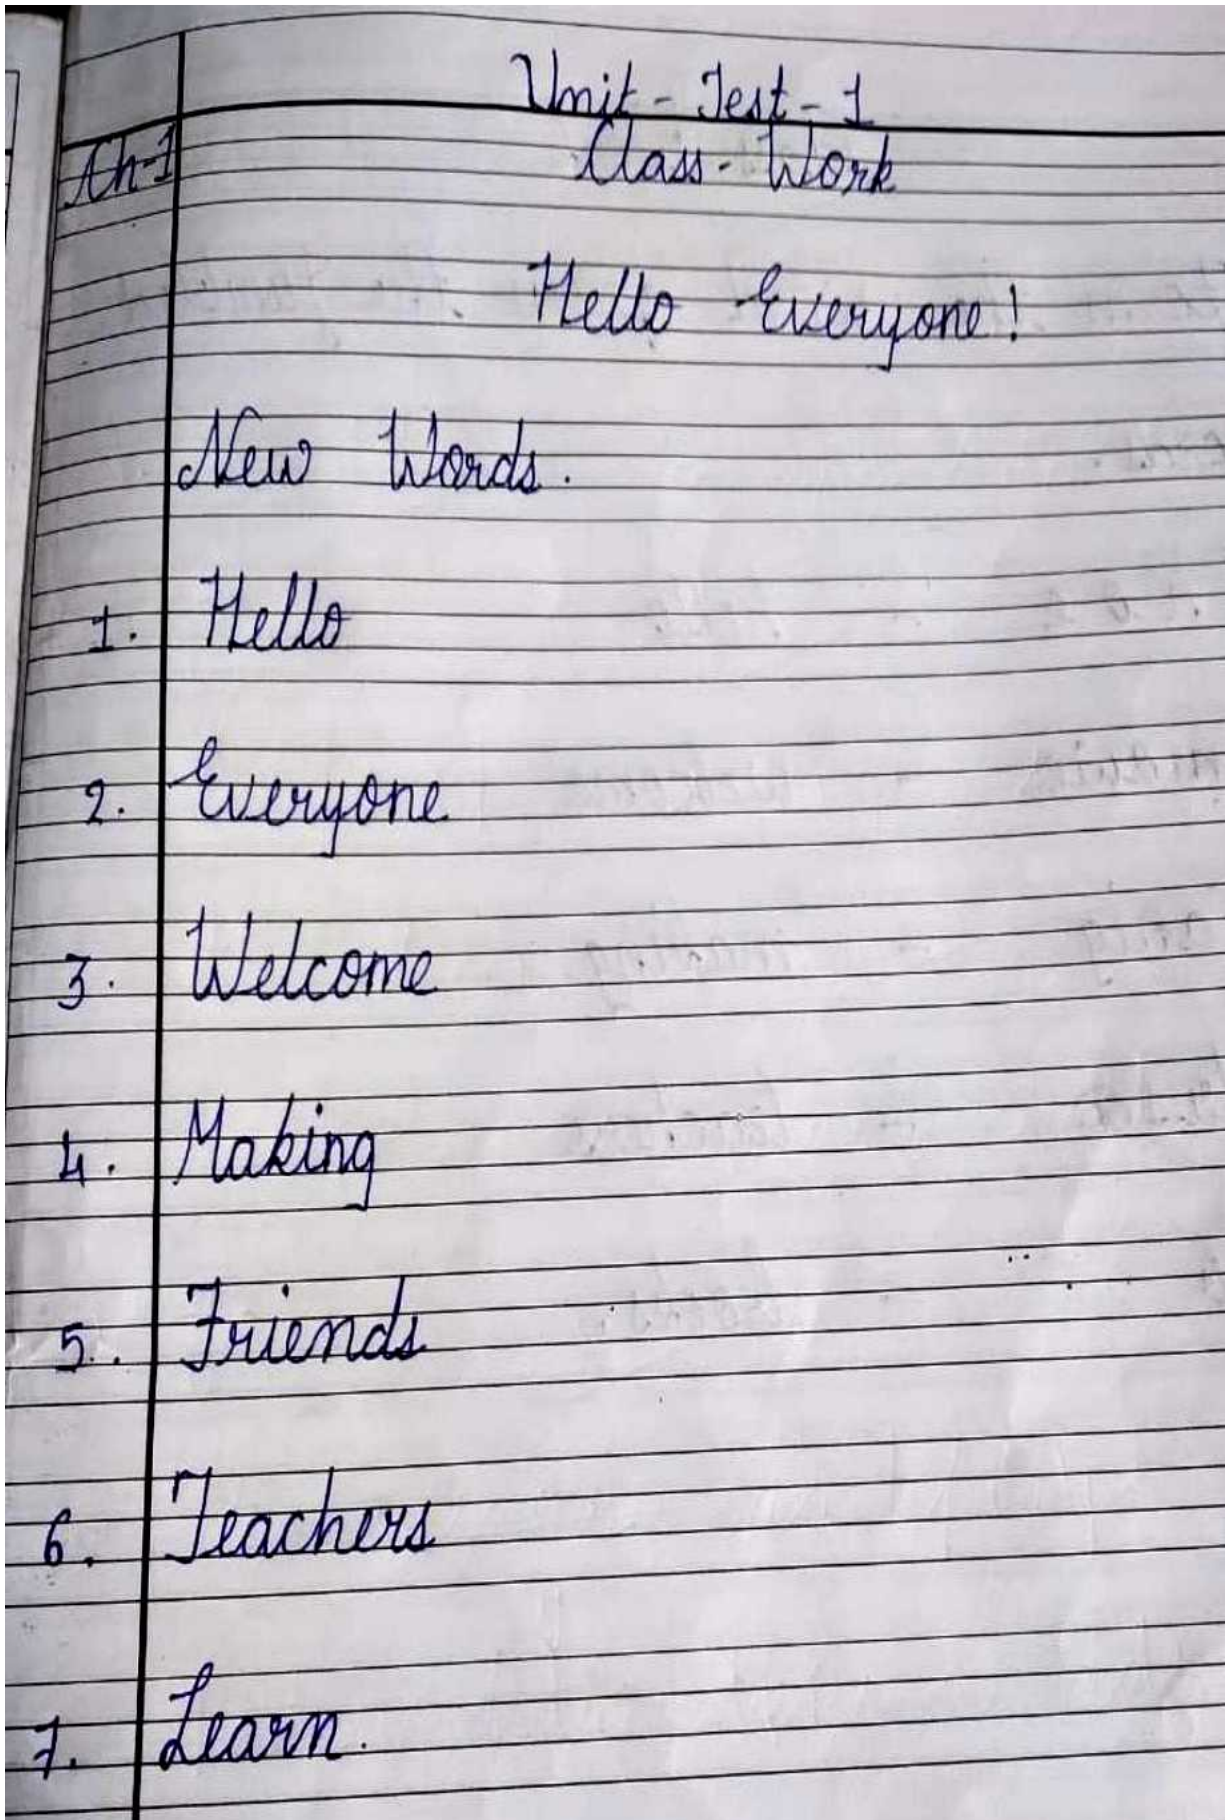 Unit - Test - 1
Ch-1 Class - Work
Hello Everyone!
New Words.
1. Hello
2. Everyone
3. Welcome
4. Making
5. Friends
6. Teachers
7. Learn.